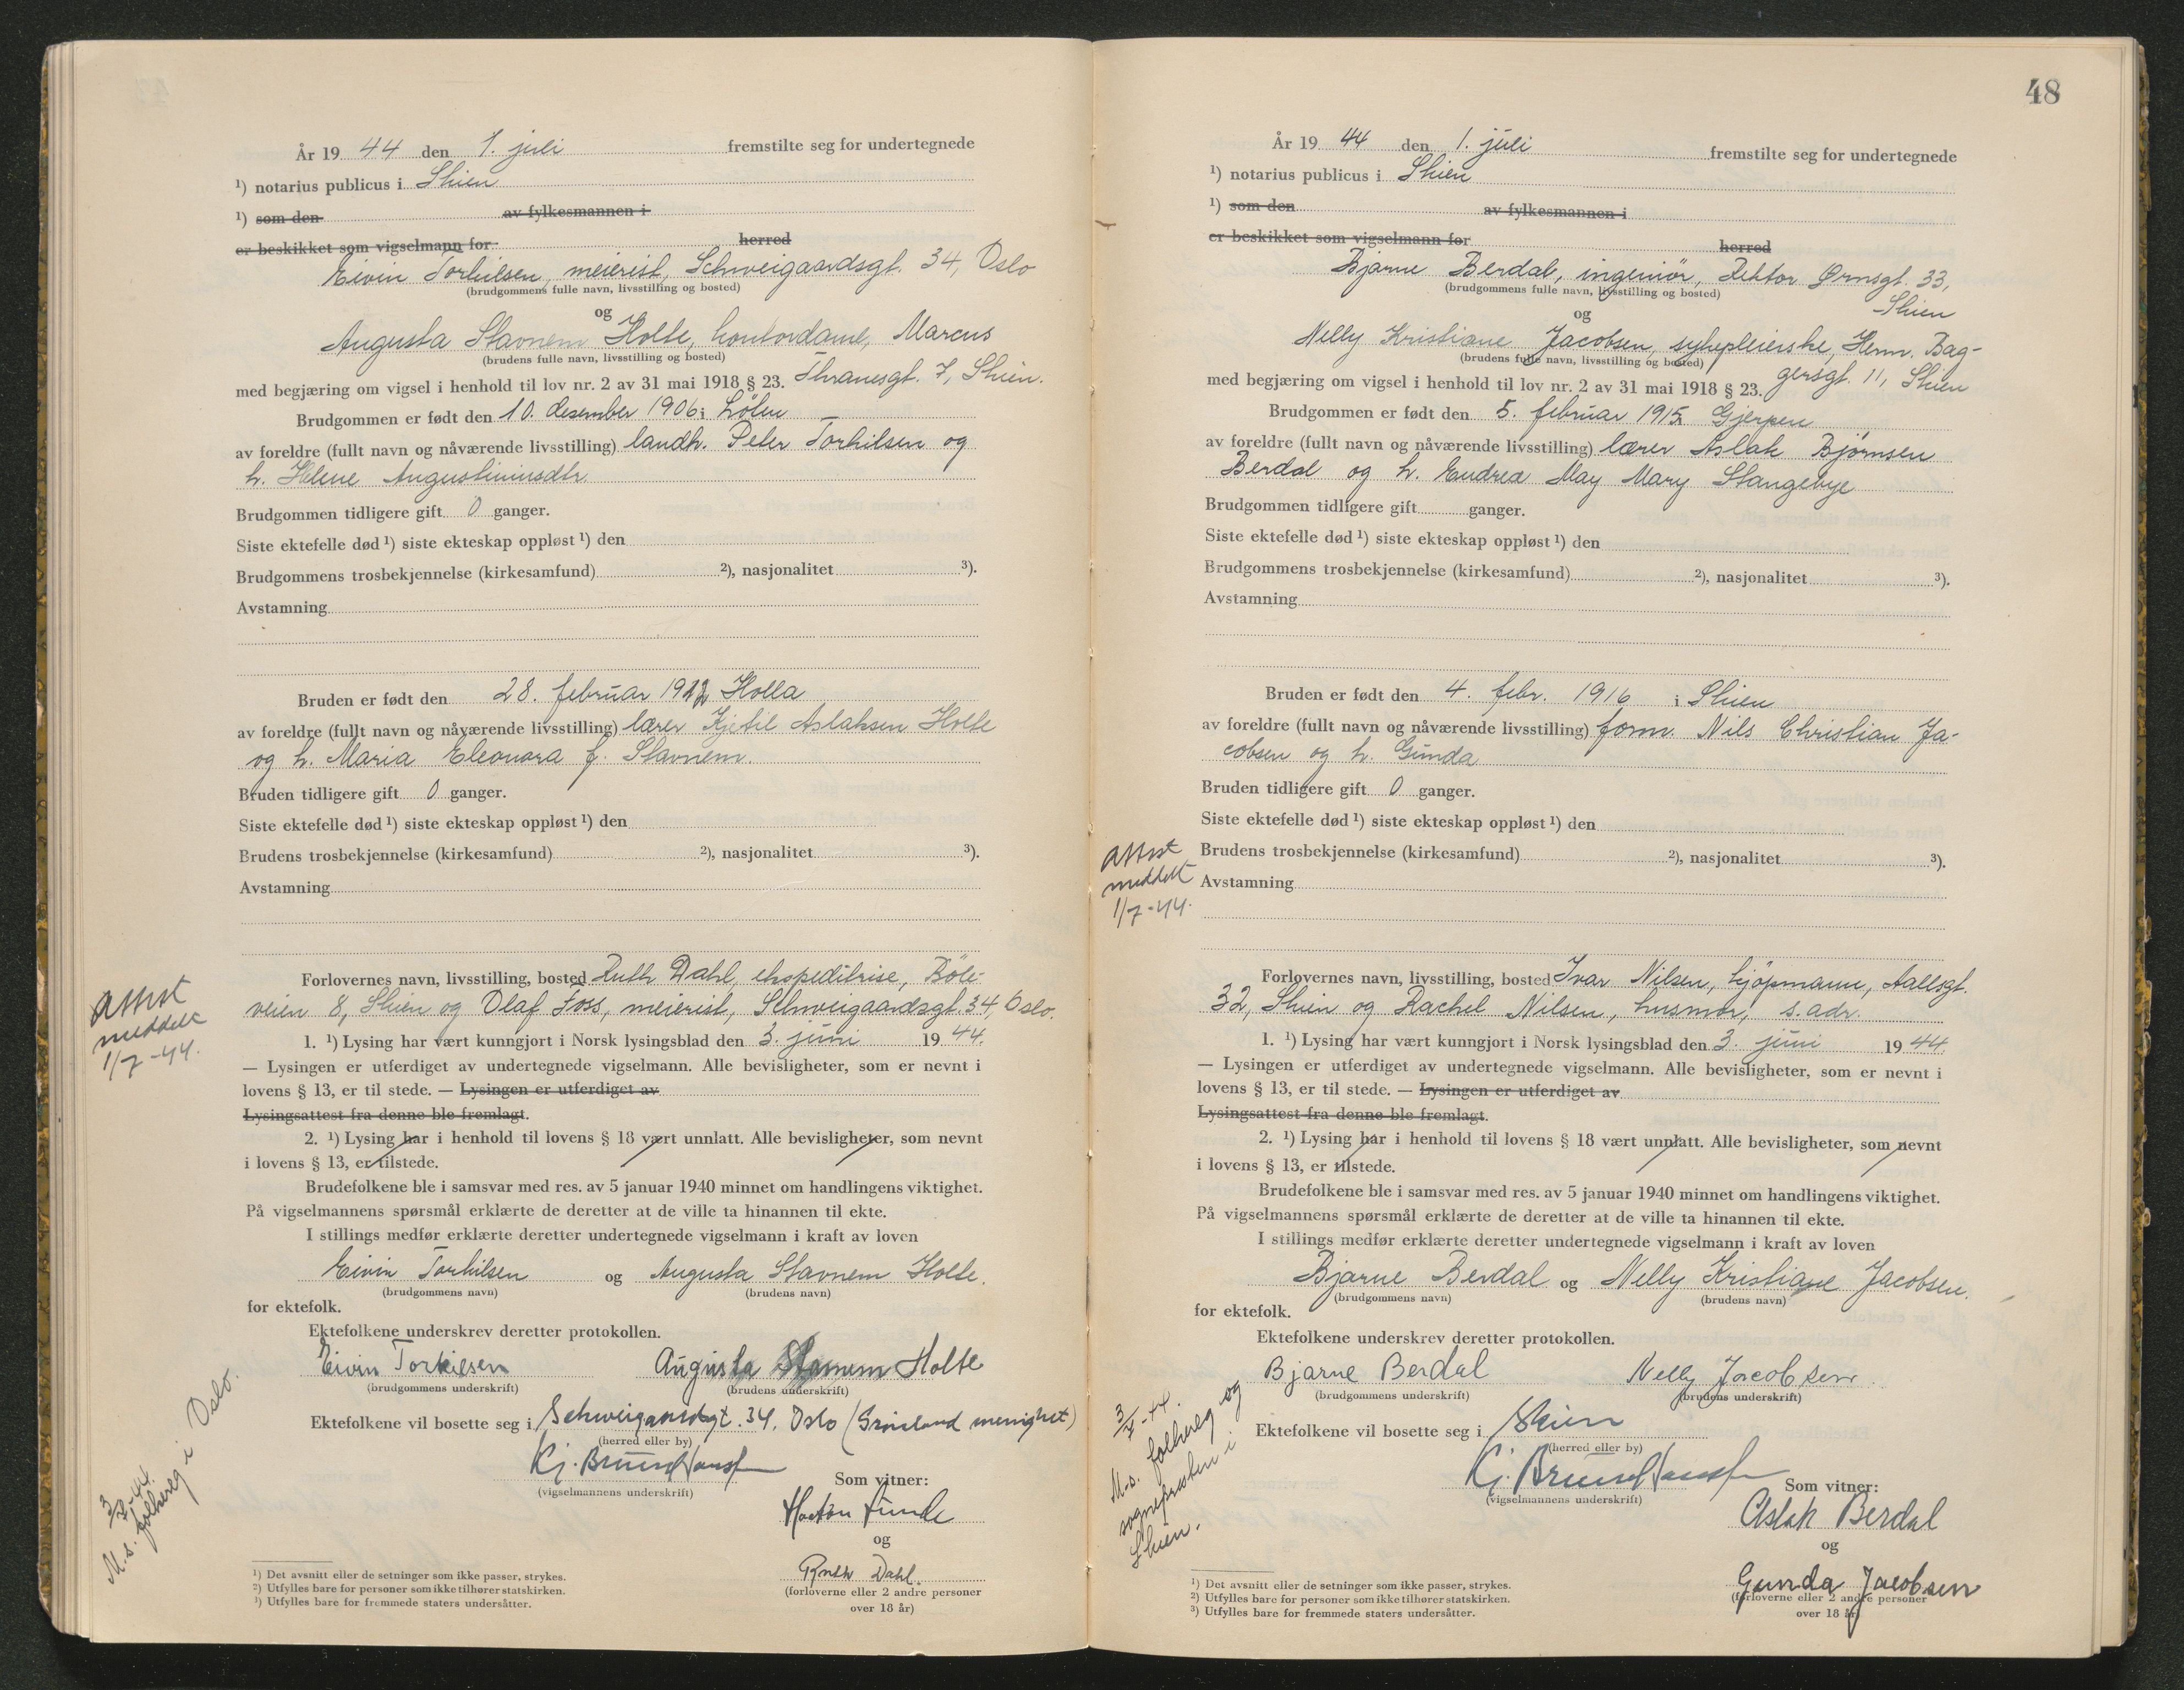 År 19 44 den 1. juli fremstilte seg for undertegnede
¹) notarius publicus i Skien
¹) som den av fylkesmannen i
er beskikket som vigselmann for herred
Eivin Torkilsen, meierist, Schweigaardsgt. 34, Oslo
(brudgommens fulle navn, livsstilling og bosted)
og
Augusta Stavnem Holte, kontordame, Marcus
(brudens fulle navn, livsstilling og bosted)
med begjæring om vigsel i henhold til lov nr. 2 av 31 mai 1918 § 23. Thranesgt. 7, Skien.
Brudgommen er født den 10. desember 1906 i
av foreldre (fullt navn og nåværende livsstilling) landh. Peter Torkilsen og
h. Helene
Brudgommen tidligere gift 0 ganger.
Siste ektefelle død ¹) siste ekteskap oppløst ¹) den
Brudgommens trosbekjennelse (kirkesamfund) ²), nasjonalitet ³).
Avstamning
Bruden er født den 28. februar Holla
av foreldre (fullt navn og nåværende livsstilling) lærer Kjetil Aslaksen Holte
og h. Maria Eleonora f. Stavnem.
Bruden tidligere gift 0 ganger.
Siste ektefelle død ¹) siste ekteskap oppløst ¹) den
Brudens trosbekjennelse (kirkesamfund) ²), nasjonalitet ³).
Avstamning
Forlovernes navn, livsstilling, bosted Ruth Dahl, ekspeditrise, Böle-
veien 8, Skien og Olaf Foss, meierist, Schweigaardsgt. 34, Oslo.
1. ¹) Lysing har vært kunngjort i Norsk lysingsblad den 3. juni 19 44.
— Lysingen er utferdiget av undertegnede vigselmann. Alle bevisligheter, som er nevnt i
lovens § 13, er til stede. — Lysingen er utferdiget av
Lysingsattest fra denne ble fremlagt.
2. ¹) Lysing har i henhold til lovens § 18 vært unnlatt. Alle bevisligheter, som nevnt
i lovens § 13, er tilstede.
Brudefolkene ble i samsvar med res. av 5 januar 1940 minnet om handlingens viktighet.
På vigselmannens spørsmål erklærte de deretter at de ville ta hinannen til ekte.
I stillings medfør erklærte deretter undertegnede vigselmann i kraft av loven
Eivin Torkilsen og Augusta Stavnem Holte.
(brudgommens navn) (brudens navn)
for ektefolk.
Ektefolkene underskrev deretter protokollen.
Eivin Torkilsen Augusta Stavnem Holte
(brudgommens underskrift) (brudens underskrift)
Ektefolkene vil bosette seg i Schweigaardsgt. 34, Oslo (Grønland menighet)
(herred eller by)
(vigselmannens underskrift)
Som vitner:
og
Ruth Dahl.
(forloverne eller 2 andre personer
over 18 år)
¹) Det avsnitt eller de setninger som ikke passer, strykes.
²) Utfylles bare for personer som ikke tilhører statskirken.
³) Utfylles bare for fremmede staters undersåtter.
Attest
meddelt
1/7-44.
M.s. folkereg i Oslo.
48
År 19 44 den 1. juli fremstilte seg for undertegnede
¹) notarius publicus i Skien
¹) som den av fylkesmannen i
er beskikket som vigselmann for herred
Bjarne Berdal, ingeniør, Rektor Ørnsgt. 33,
(brudgommens fulle navn, livsstilling og bosted)
Skien
og
Nelly Kristiane Jacobsen, sykepleierske, Herm. Bag-
(brudens fulle navn, livsstilling og bosted)
med begjæring om vigsel i henhold til lov nr. 2 av 31 mai 1918 § 23. gersgt. 11, Skien
Brudgommen er født den 5. februar 1915 i Gjerpen
av foreldre (fullt navn og nåværende livsstilling) lærer Aslak Bjørnsen
Berdal og h. Endrea May Mary Stangebye
Brudgommen tidligere gift ganger.
Siste ektefelle død ¹) siste ekteskap oppløst ¹) den
Brudgommens trosbekjennelse (kirkesamfund) ²), nasjonalitet ³).
Avstamning
Bruden er født den 4. febr. 1916 i Skien
av foreldre (fullt navn og nåværende livsstilling) form. Nils Christian Ja-
cobsen og h. Gunda
Bruden tidligere gift 0 ganger.
Siste ektefelle død ¹) siste ekteskap oppløst ¹) den
Brudens trosbekjennelse (kirkesamfund) ²), nasjonalitet ³).
Avstamning
Attest
meddelt
1/7-44.
Forlovernes navn, livsstilling, bosted Ivar Nilsen, kjöpmann, Aallsgt.
32, Skien og Rachel Nilsen, husmor, s. adr.
1. ¹) Lysing har vært kunngjort i Norsk lysingsblad den 3. juni 19 44.
— Lysingen er utferdiget av undertegnede vigselmann. Alle bevisligheter, som er nevnt i
lovens § 13, er til stede. — Lysingen er utferdiget av
Lysingsattest fra denne ble fremlagt.
2. ¹) Lysing har i henhold til lovens § 18 vært unnlatt. Alle bevisligheter, som nevnt
i lovens § 13, er tilstede.
Brudefolkene ble i samsvar med res. av 5 januar 1940 minnet om handlingens viktighet.
På vigselmannens spørsmål erklærte de deretter at de ville ta hinannen til ekte.
I stillings medfør erklærte deretter undertegnede vigselmann i kraft av loven
Bjarne Berdal og Nelly Kristiane Jacobsen.
(brudgommens navn) (brudens navn)
for ektefolk.
Ektefolkene underskrev deretter protokollen.
Bjarne Berdal Nelly Jacobsen.
(brudgommens underskrift) (brudens underskrift)
Ektefolkene vil bosette seg i Skien
(herred eller by)
(vigselmannens underskrift)
Som vitner:
Aslak Berdal
og
Gunda Jacobsen
(forloverne eller 2 andre personer
over 18 år)
¹) Det avsnitt eller de setninger som ikke passer, strykes.
²) Utfylles bare for personer som ikke tilhører statskirken.
³) Utfylles bare for fremmede staters undersåtter.
M.s. folkereg og
sogneprosten i
Skien.